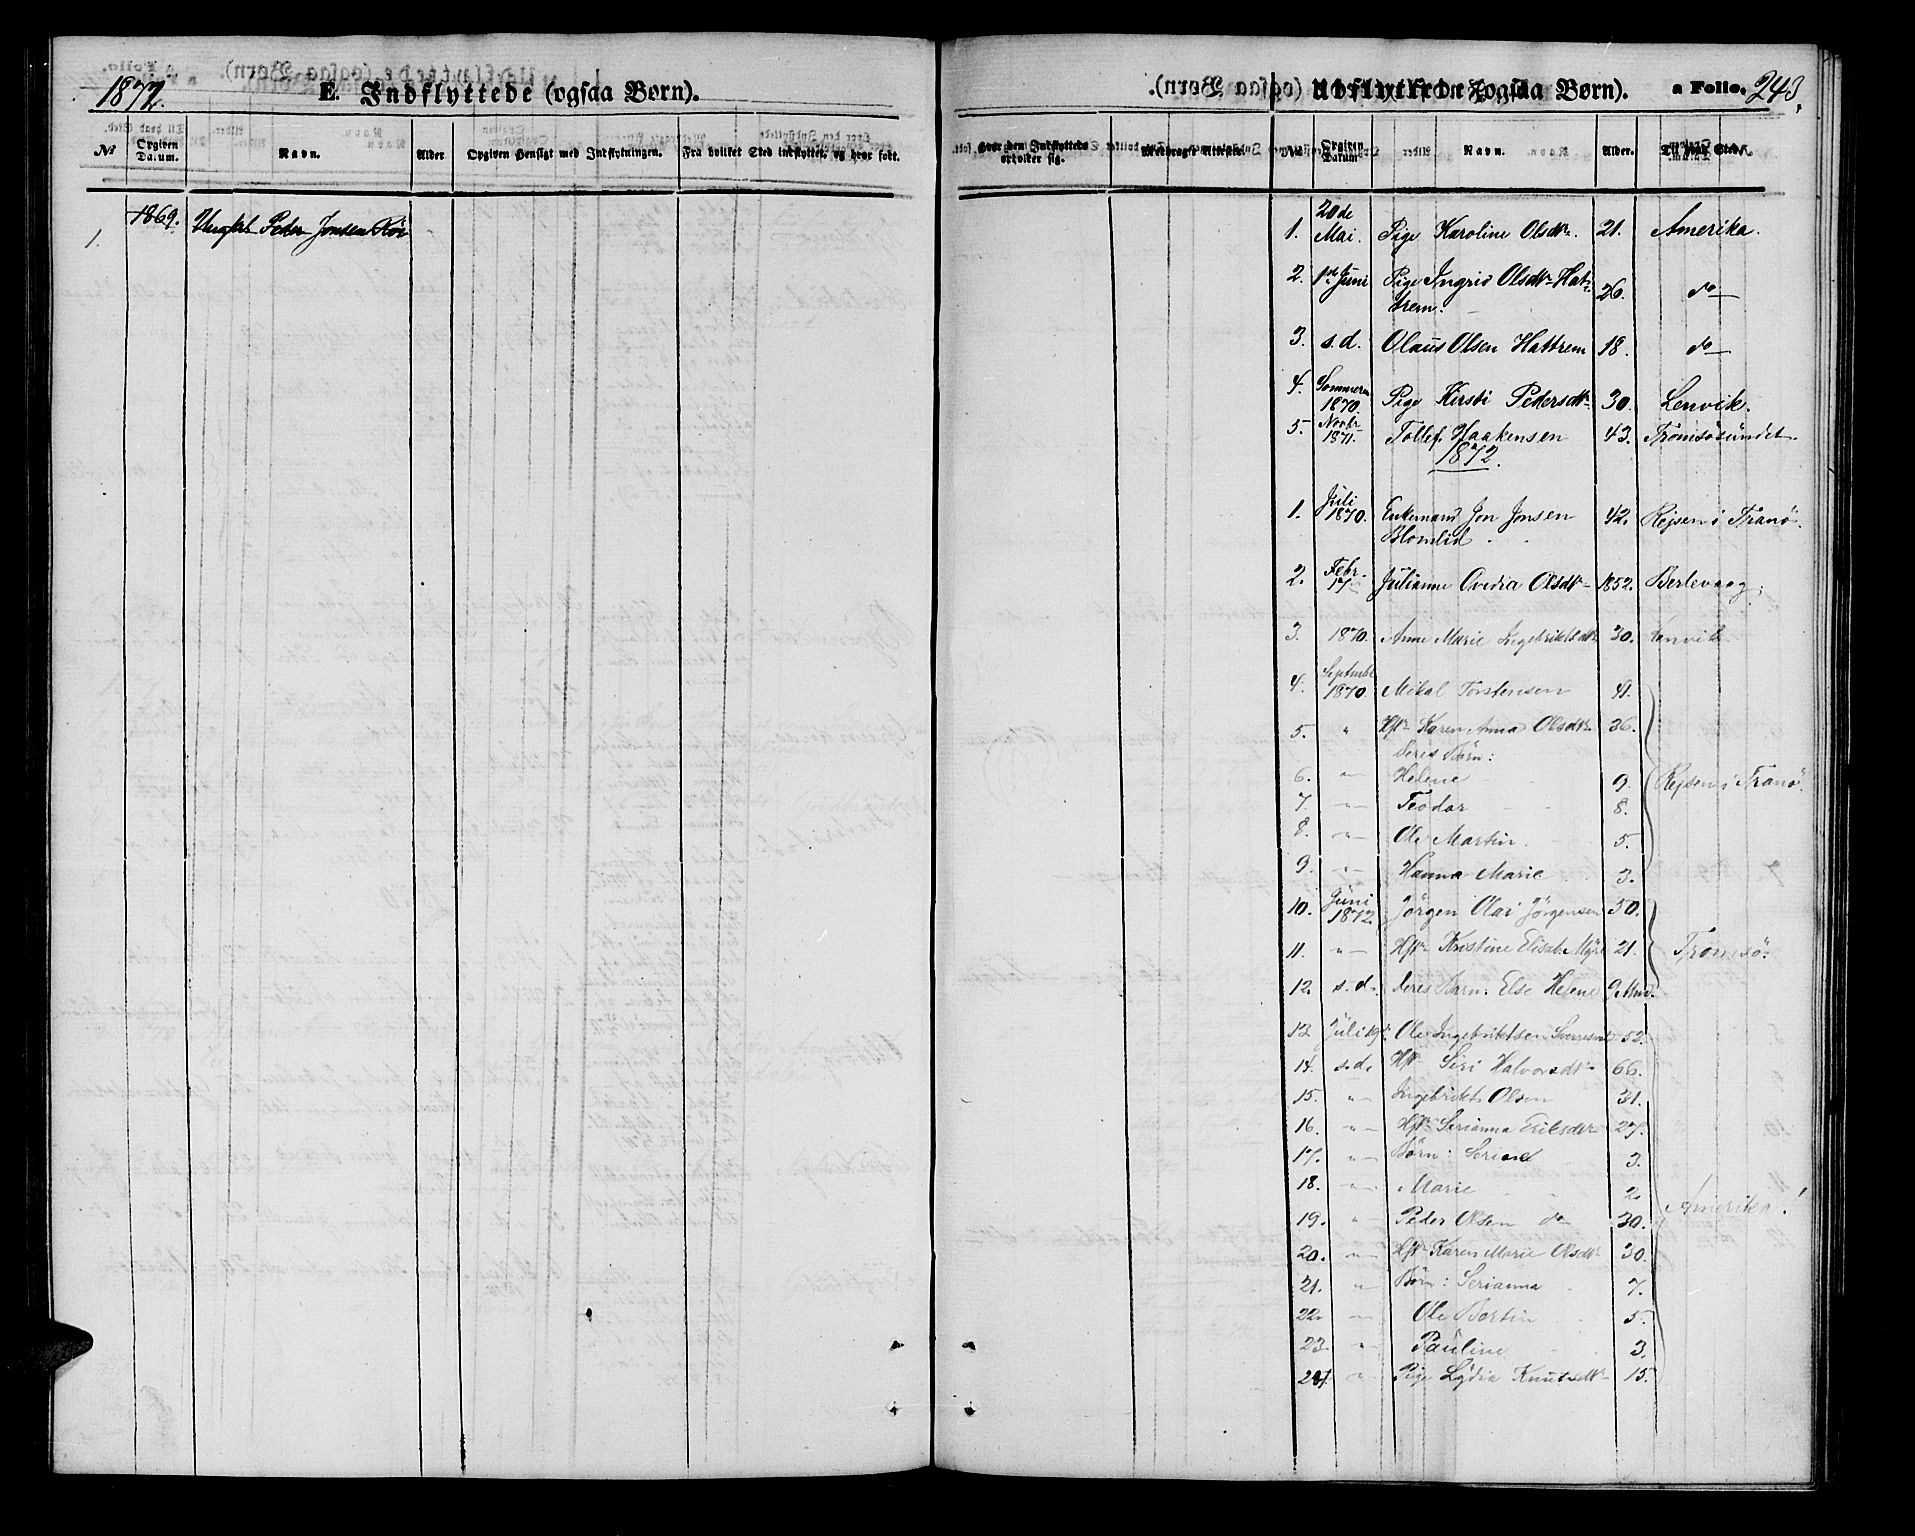 E. Indflyttede (ogsaa Børn).
№ Opgiven Datum. Navn. Alder Opgiven Hensigt med Indflytningen. Fra hvilket Sted indflyttet, og hvor født.
1. 1869. Ungkl. Peder Jonsen
Udflyttede (ogsaa Børn). a Folio. 243.
Hvor den Indflyttede opholder sig. № Opgiven Datum. Navn. Alder. Til hvad Sted.
1. 20de Mai. Pige Karoline Olsdtr. 21. Amerika.
2. 1ste Juni Pige Ingrid Olsdtr Hat-
trem. 26. do
3. s.d. Olaus Olsen Hattrem 18. do
4. Sommeren 1870. Pige Kirsti Pedersdtr 30. Lenvik.
5. Novbr 1871. Tollef Haakensen 43. Tromsösundet.
1872.
1. Juli 1870. Enkemand Jon Jonsen 42. Rejsen i Tranö.
Blomlid
2. Febr. 17 Julianne Ovidia Olsdtr 1852. Berlevaag.
3. 1870. Anne Marie Ingebriktsdtr 30. Lenvik.
4. Septembr 1870 Mikal Torstensen 41.
5. " Hstr Karen Anna Olsdtr 36.
deres Børn:
6. " Helene 9. Rejsen i Tranö.
7. " Teodor 8.
8. " Ole Martin. 5.
9. " Hanna Marie 3.
10. Juni 1872. Jörgen Olai Jörgensen 50.
11. " Hstr Kristine Elisab. Myre 21. Tromsö.
12. s.d. deres Barn: Else Helene 9 Mnd.
13. Juli Ole Ingebriktsen 52.
14. s.d. Hstr Siri Halvorsdtr 66.
15. " Ingebrikt Olsen 31.
16. " Hstr Serianna Eriksdtr 27.
17. " Børn: 3.
18. " Marie 2. Amerika!
19. " Peder Olsen do 30.
20. " Hstr Karen Marie Olsdtr 30.
21. " Børn: Serianna 7.
22. " Ole Bertin 5.
23. " Pauline 3.
24. " Pige Lydia Knutsdtr 15.